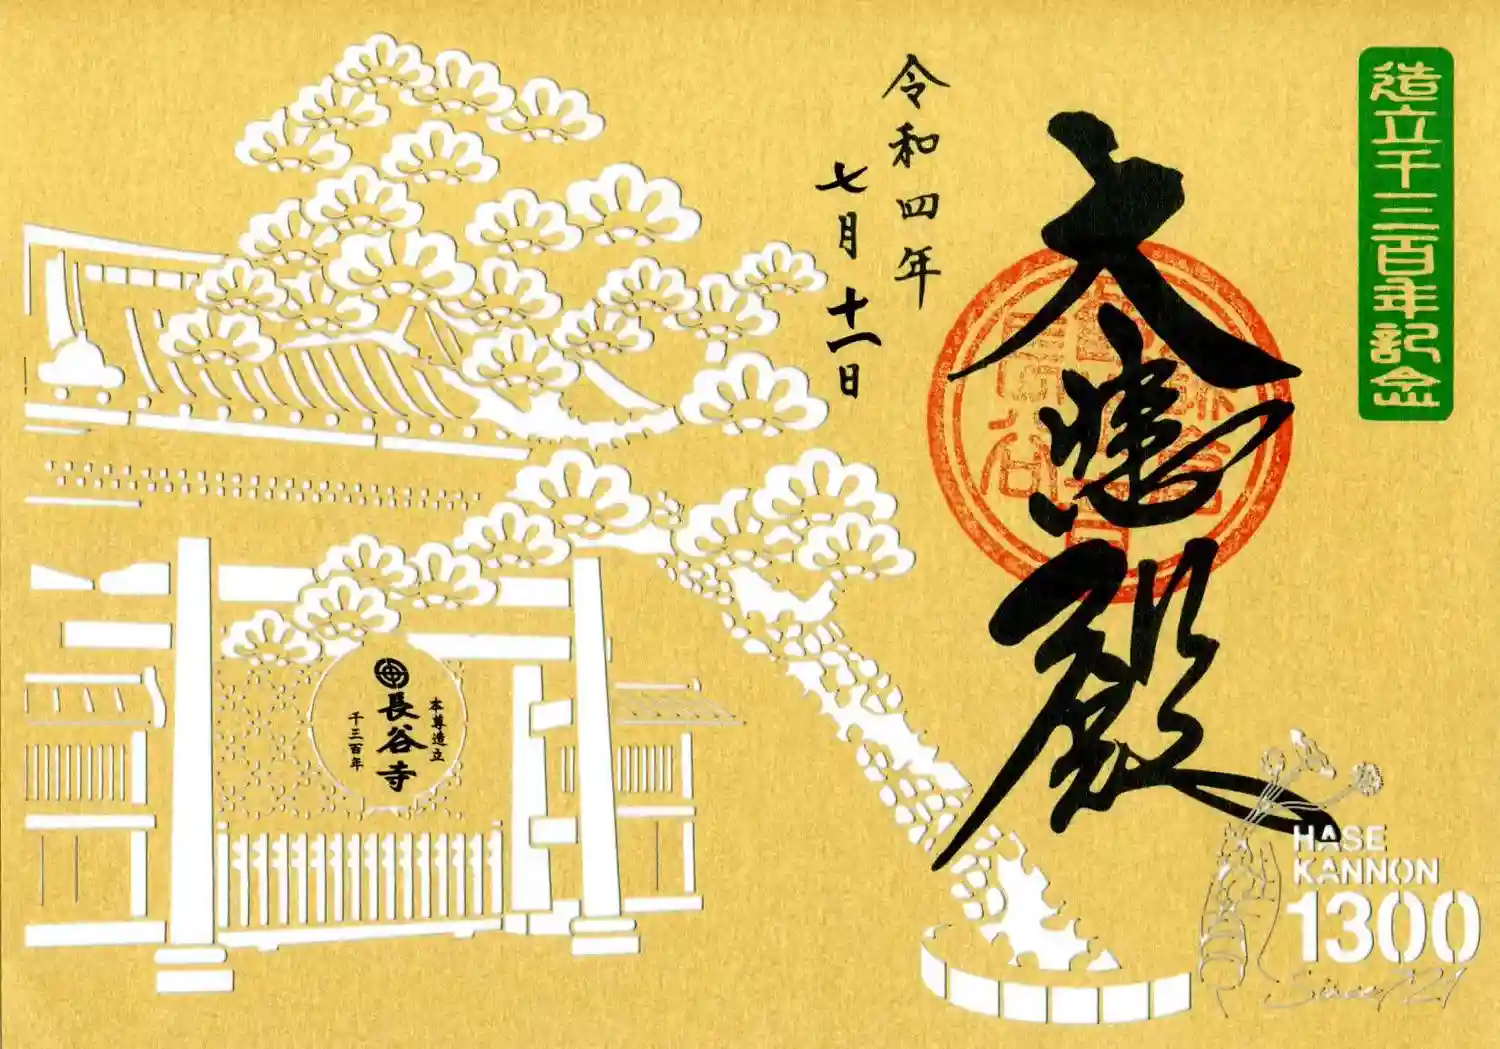 造立千三百年記念
大悲殿
令和四年
七月十一日
本尊造立
長谷寺
千三百年
HASE
KANNON
1300
Since 721